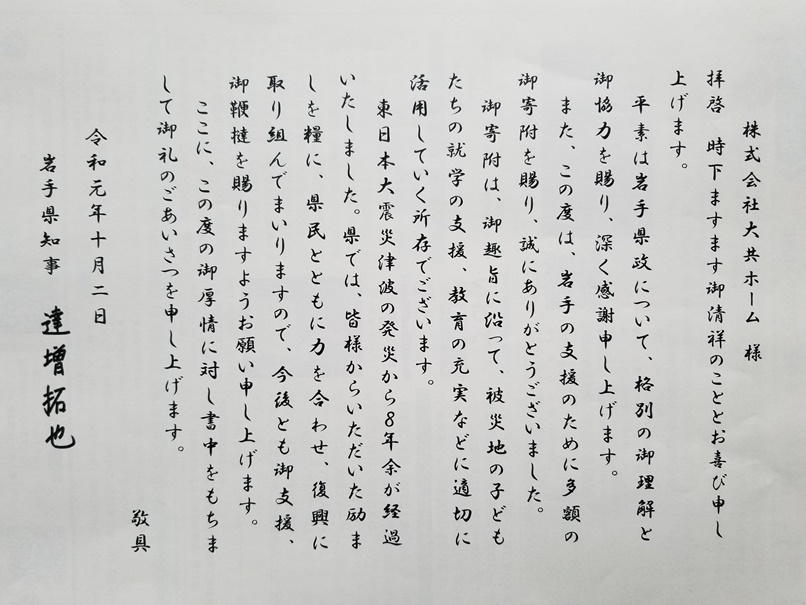 株式会社大共ホーム　様
拝啓　時下ますます御清祥のこととお喜び申し
上げます。
平素は岩手県政について、格別の御理解と
御協力を賜り、深く感謝申し上げます。
また、この度は、岩手の支援のために多額の
御寄附を賜り、誠にありがとうございました。
御寄附は、御趣旨に沿って、被災地の子ども
たちの就学の支援、教育の充実などに適切に
活用していく所存でございます。
東日本大震災津波の発災から８年余が経過
いたしました。県では、皆様からいただいた励ま
しを糧に、県民とともに力を合わせ、復興に
取り組んでまいりますので、今後とも御支援、
御鞭撻を賜りますようお願い申し上げます。
ここに、この度の御厚情に対し書中をもちま
して御礼のごあいさつを申し上げます。
敬具
令和元年十月二日
岩手県知事　達増拓也